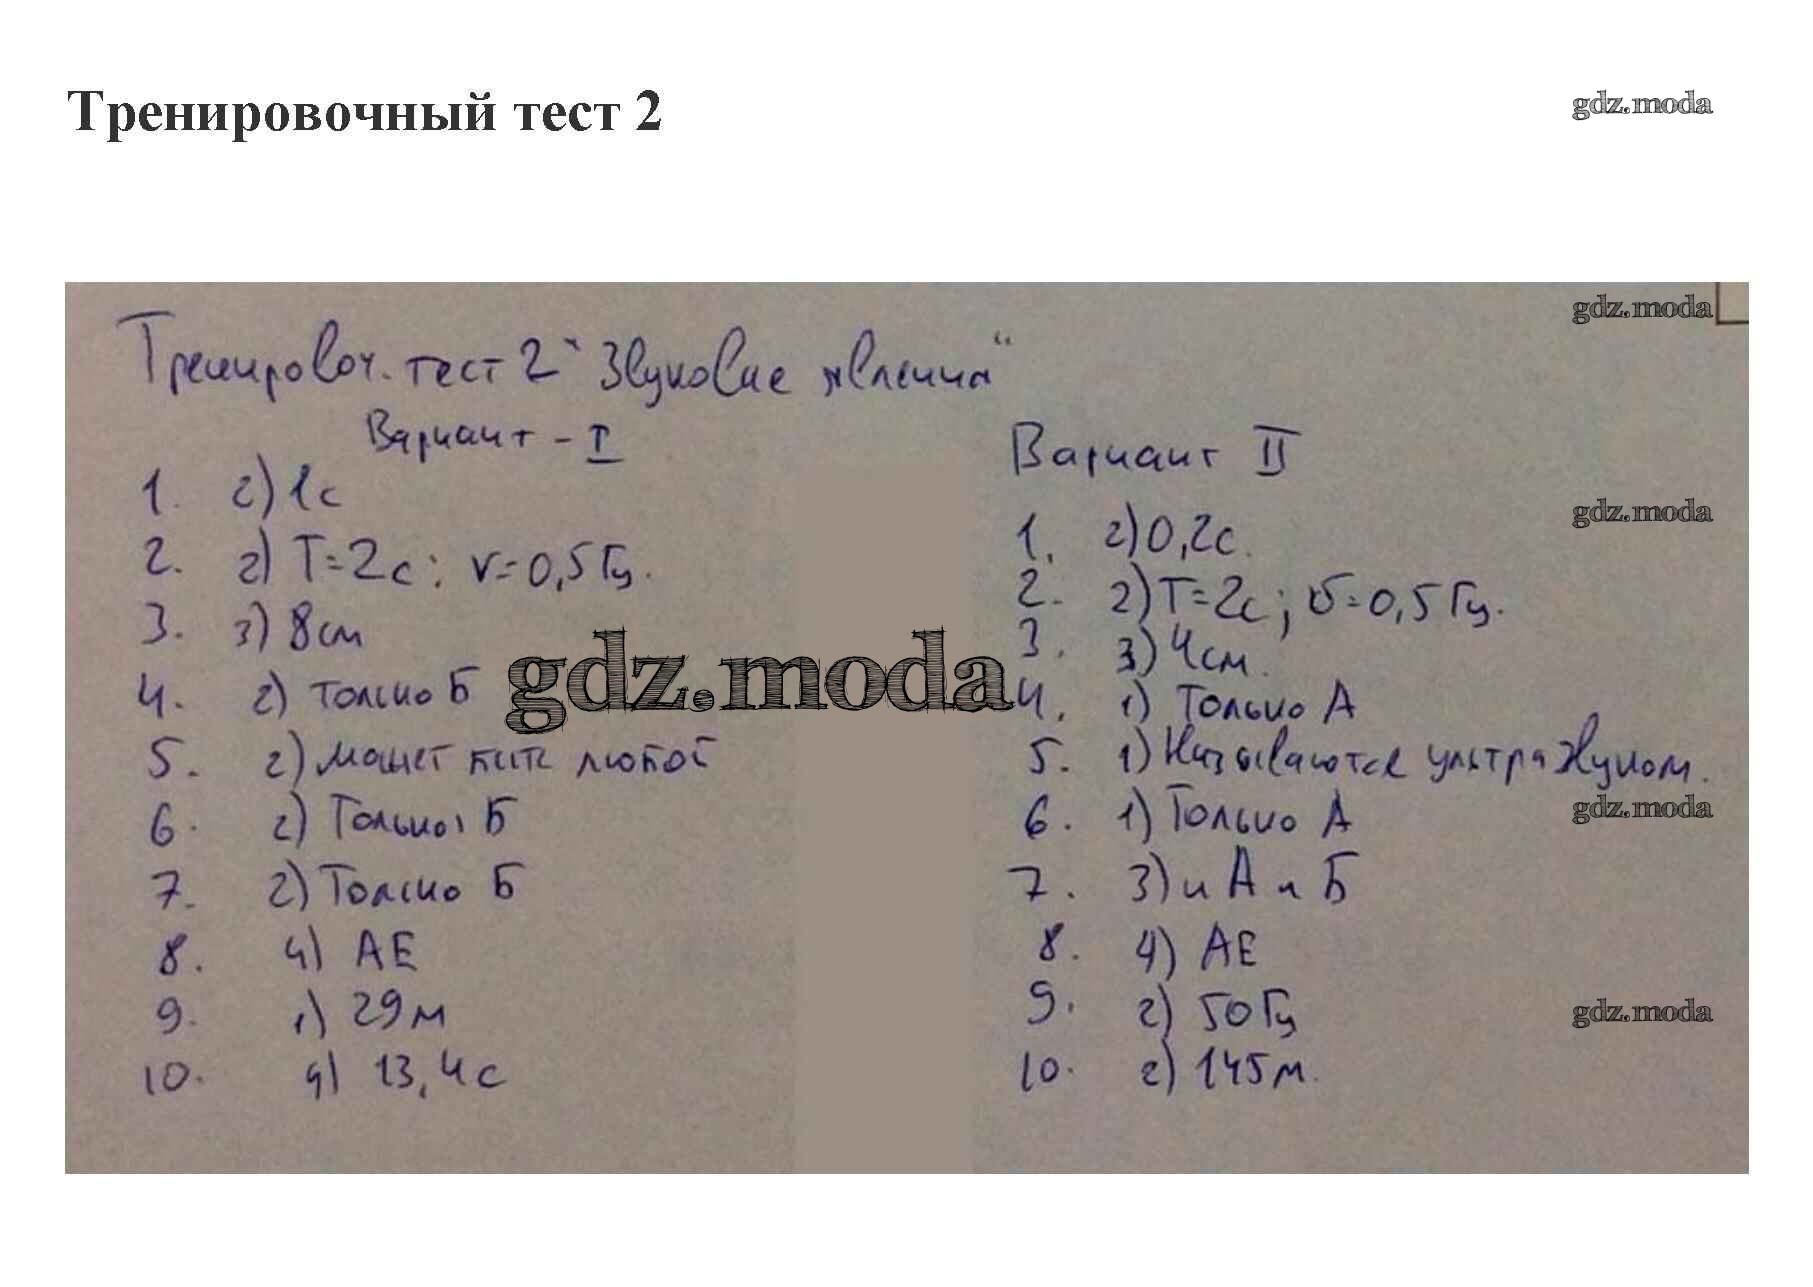 Тренировочный тест 2
gdz.moda
gdz.moda
Тренировоч. тест 2 "Звуковые явления"
Вариант - I
1. 2) 1с
2. 2) T=2с; v=0,5Гц.
3. 3) 8см
4. 2) только Б
5. 2) может быть любой
6. 2) Только Б
7. 2) Только Б
8. 4) АЕ
9. 1) 29м
10. 4) 13,4с
gdz.moda
Вариант II
gdz.moda
1. 2) 0,2с.
2. 2) T=2с; υ=0,5Гц.
3. 3) 4см.
4. 1) Только А
5. 1) Называются ультразвуком.
gdz.moda
6. 1) Только А
7. 3) и А и Б
8. 4) АЕ
9. 2) 50Гц
gdz.moda
10. 2) 145м.